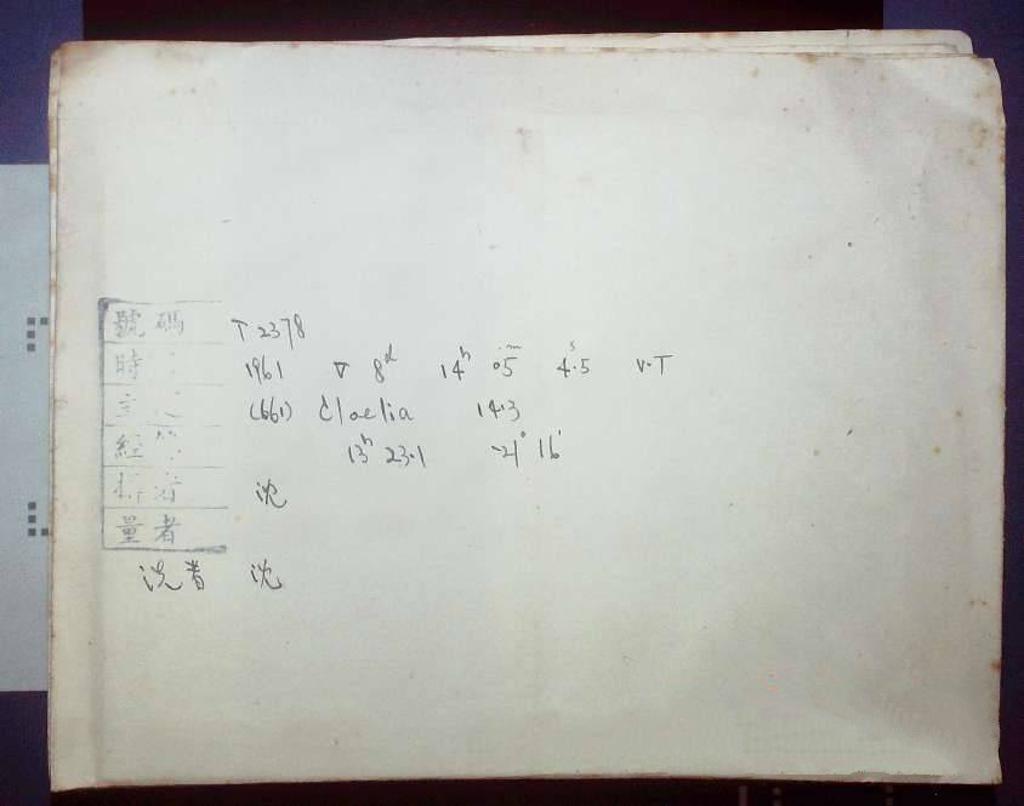 號碼 T 2378
時 1961 V 8d 14h 05m 4s.5 U.T
(661) Cloelia 14.3
經 13h 23.1 -21° 16'
者 沈
量者
洗者 沈